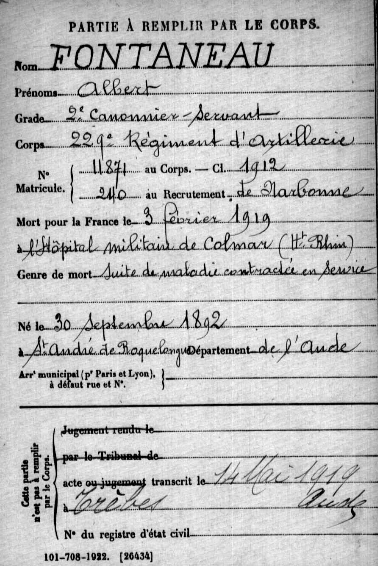 PARTIE À REMPLIR PAR LE CORPS.
Nom FONTANEAU
Prénoms Albert
Grade 2e Canonnier-Servant
Corps 229e Régiment d'Artillerie
N° Matricule. 11871 au Corps. — Cl. 1912
240 au Recrutement de Narbonne
Mort pour la France le 3 février 1919
à l'Hôpital militaire de Colmar (Ht Rhin)
Genre de mort Suite de maladie contractée en service
Né le 30 Septembre 1892
à St André de Roquelongue Département de l'Aude
Arrt municipal (pr Paris et Lyon), à défaut rue et N°.
Cette partie n'est pas à remplir par le Corps.
Jugement rendu le
par le Tribunal de
acte ou jugement transcrit le 14 Mai 1919
à Trèbes Aude
N° du registre d'état civil
101-708-1922. [26434]